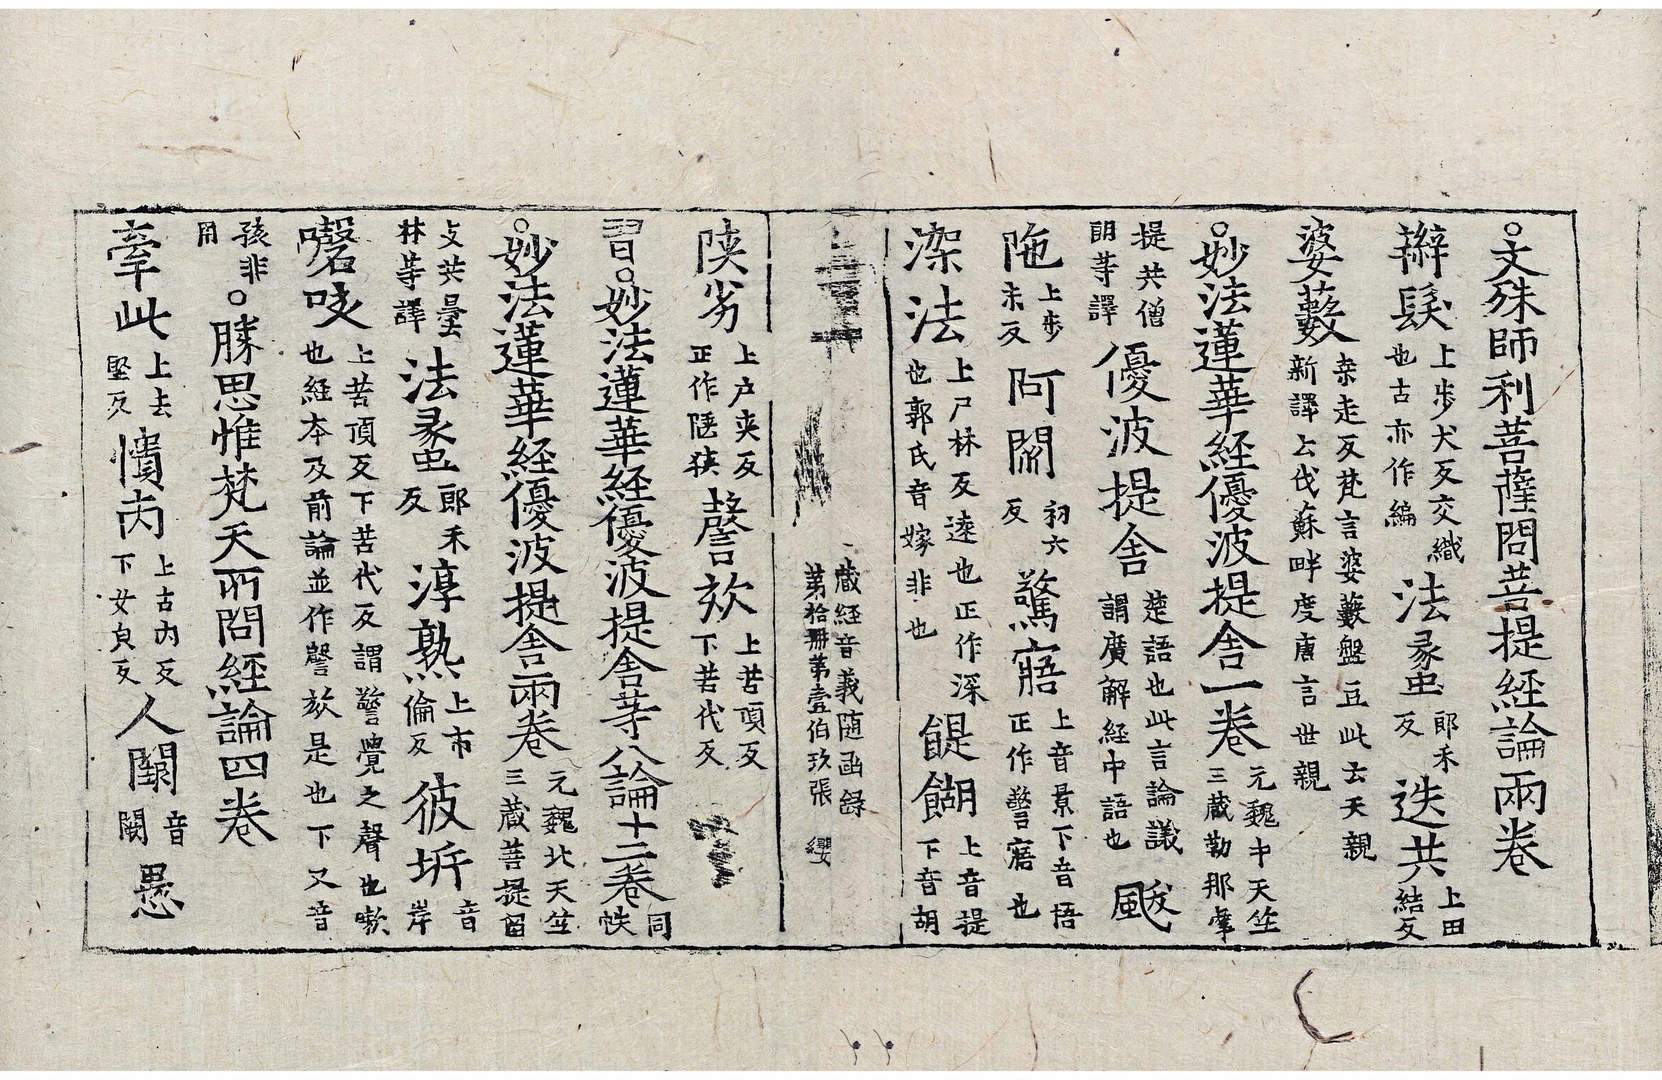 ○文殊師利菩薩問菩提經論兩卷
辮髮上步犬反交織也古亦作編法蠡郎禾反迭共上田結反
婆藪桒走反梵言婆藪盤豆此云天親新譯云伐蘇畔度唐言世親
○妙法蓮華經優波提舍一卷元魏中天竺三藏勒那摩
提共僧朗等譯優波提舍楚語也此言論議謂廣解經中語也颰
陁上步末反阿閦初六反驚寤上音景下音悟正作警寤也
深法上尸林反遠也正作深也郭氏音嫁非也餶餬上音提下音胡
藏經音義随函録
第拾冊第壹伯玖張 纓
陜劣上户夾反正作陿狹謦欬上苦頂反下苦代反
習○妙法蓮華經優波提舍等八論十二卷同帙
○妙法蓮華經優波提舍兩卷元魏北天竺三藏菩提留
支共曇林等譯法蠡郎禾反淳熟上市倫反彼坼音岸
嚫咳上苦頂反下苦代反謂警覺之聲也嗽也經本及前論並作謦欬是也下又音
孩非用○勝思惟梵天所問經論四卷
牽此上去堅反憒丙上古內反下女皃反人闠音闕愚